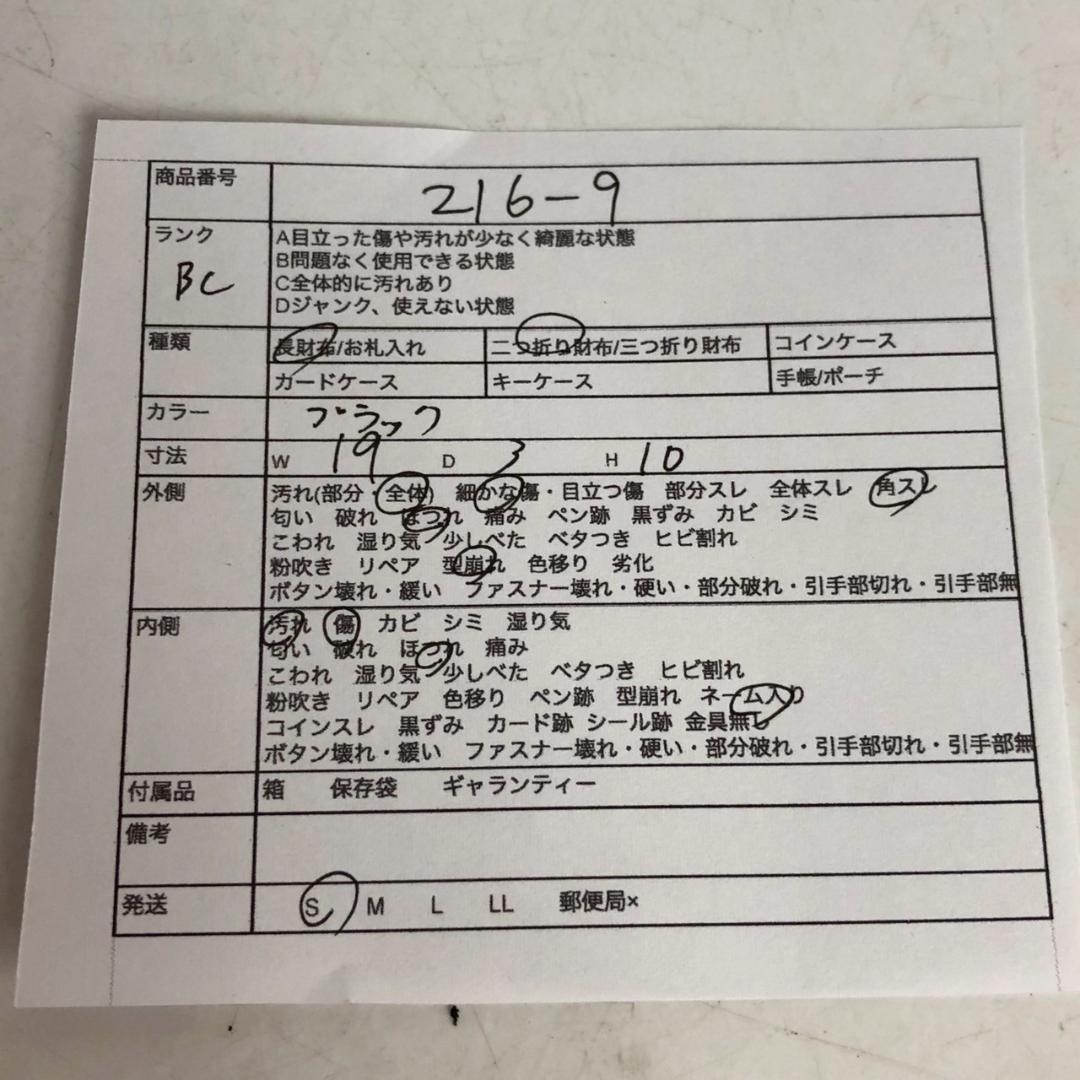 商品番号 216-9
ランク BC
A目立った傷や汚れが少なく綺麗な状態
B問題なく使用できる状態
C全体的に汚れあり
Dジャンク、使えない状態
種類 長財布/お札入れ 二つ折り財布/三つ折り財布 コインケース
カードケース キーケース 手帳/ポーチ
カラー ブラック
寸法 W 19 D 3 H 10
外側 汚れ(部分・全体) 細かな傷・目立つ傷 部分スレ 全体スレ 角スレ
匂い 破れ ほつれ 痛み ペン跡 黒ずみ カビ シミ
こわれ 湿り気 少しべた ベタつき ヒビ割れ
粉吹き リペア 型崩れ 色移り 劣化
ボタン壊れ・緩い ファスナー壊れ・硬い・部分破れ・引手部切れ・引手部無
内側 汚れ 傷 カビ シミ 湿り気
匂い 破れ ほつれ 痛み
こわれ 湿り気 少しべた ベタつき ヒビ割れ
粉吹き リペア 色移り ペン跡 型崩れ ネーム入り
コインスレ 黒ずみ カード跡 シール跡 金具無し
ボタン壊れ・緩い ファスナー壊れ・硬い・部分破れ・引手部切れ・引手部無
付属品 箱 保存袋 ギャランティー
備考
発送 S M L LL 郵便局×